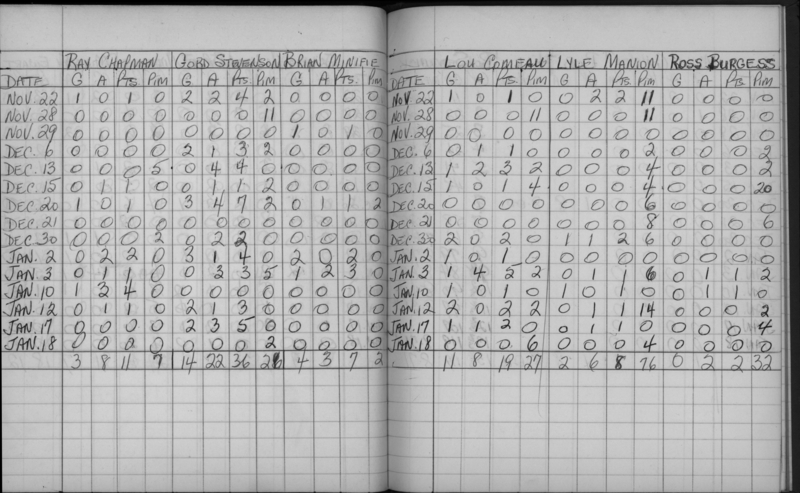 RAY CHAPMAN GORD STEVENSON BRIAN MINIFIE
DATE G A PTS PIM G A PTS PIM G A PTS. PIM
NOV. 22 1 0 1 0 2 2 4 2 0 0 0 0
NOV. 28 0 0 0 0 0 0 0 11 0 0 0 0
NOV. 29 0 0 0 0 0 0 0 0 1 0 1 0
DEC. 6 0 0 0 0 2 1 3 2 0 0 0 0
DEC. 13 0 0 0 5 0 4 4 0 0 0 0 0
DEC. 15 0 1 1 0 0 1 1 2 0 0 0 0
DEC. 20 1 0 1 0 3 4 7 2 0 1 1 2
DEC. 21 0 0 0 0 0 0 0 0 0 0 0 0
DEC. 30 0 0 0 2 0 2 2 0 0 0 0
JAN. 2 0 2 2 0 3 1 4 0 2 0 2 0
JAN. 3 0 1 1 0 0 3 3 5 1 2 3 0
JAN. 10 1 3 4 0 0 0 0 0 0 0 0 0
JAN. 12 0 1 1 0 2 1 3 0 0 0 0 0
JAN. 17 0 0 0 0 2 3 5 0 0 0 0 0
JAN. 18 0 0 0 0 0 0 0 2 0 0 0 0
3 8 11 7 14 22 36 26 4 3 7 2
LOU COMEAU LYLE MANION ROSS BURGESS
DATE G A PTS PIM G A PTS PIM G A PTS PIM
NOV 22 1 0 1 0 0 2 2 11 0 0 0 0
NOV. 28 0 0 0 11 0 0 0 11 0 0 0 0
NOV. 29 0 0 0 0 0 0 0 0 0 0 0 0
DEC. 6 0 1 1 0 0 0 0 2 0 0 0 2
DEC. 13 1 2 3 2 0 0 0 4 0 0 0 2
DEC. 15 1 0 1 4 0 0 0 4 0 0 0 20
DEC. 20 0 0 0 0 0 0 0 6 0 0 0 0
DEC. 21 0 0 0 0 0 0 0 8 0 0 0 6
DEC. 30 2 0 2 0 1 1 2 6 0 0 0 0
JAN. 2 1 0 1 0 0 0 0 0 0 0 0 0
JAN. 3 1 4 5 2 0 1 1 6 0 1 1 2
JAN. 10 1 0 1 0 1 0 1 0 0 1 1 0
JAN. 12 2 0 2 2 0 1 1 14 0 0 0 2
JAN. 17 1 1 2 0 0 1 1 0 0 0 0 4
JAN. 18 0 0 0 6 0 0 0 4 0 0 0 0
11 8 19 27 2 6 8 76 0 2 2 32